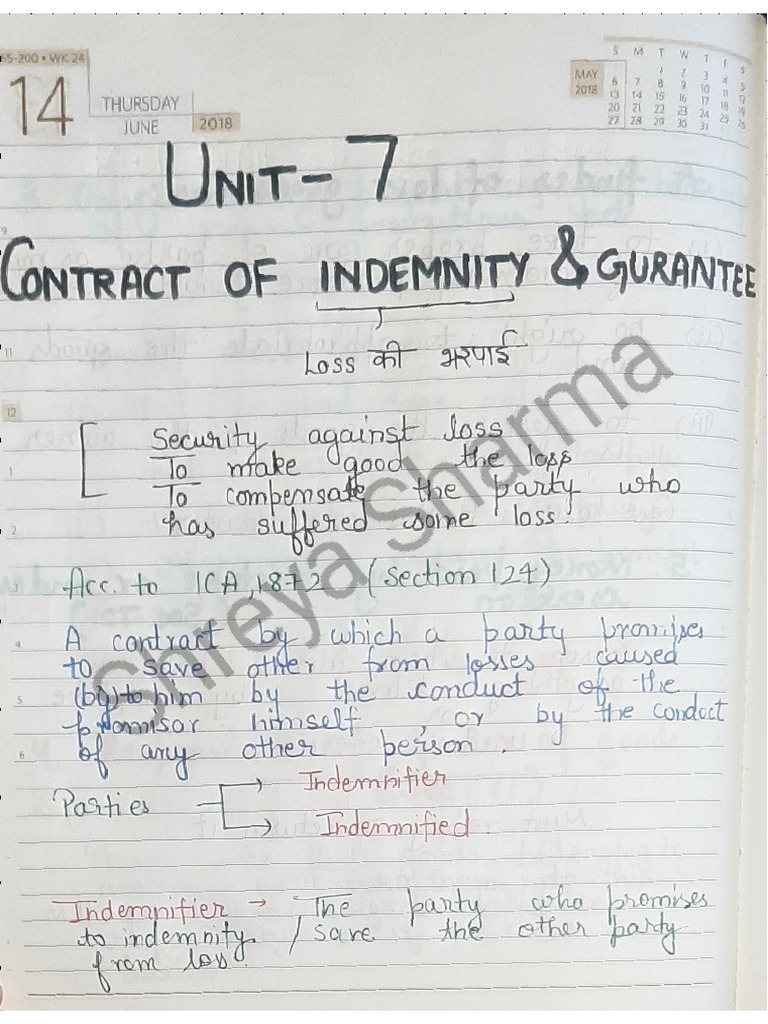 65-200 • WK 24
14
THURSDAY
JUNE
2018
MAY
2018
S M T W T F S
1 2 3 4 5
6 7 8 9 10 11 12
13 14 15 16 17 18 19
20 21 22 23 24 25 26
27 28 29 30 31
UNIT-7
CONTRACT OF INDEMNITY & GURANTEE
Loss की भरपाई
11
12
Security against loss
1
To make good the loss
To compensate the party who
2
has suffered some loss.
3
Acc. to ICA, 1872 (Section 124)
4
A contract by which a party promises
to save other from losses caused
5
(by) to him by the conduct of the
promisor himself, or by the conduct
6
of any other person.
Parties → Indemnifier
→ Indemnified
Indemnifier → The party who promises
to indemnity / save the other party
from loss.
Shreya Sharma